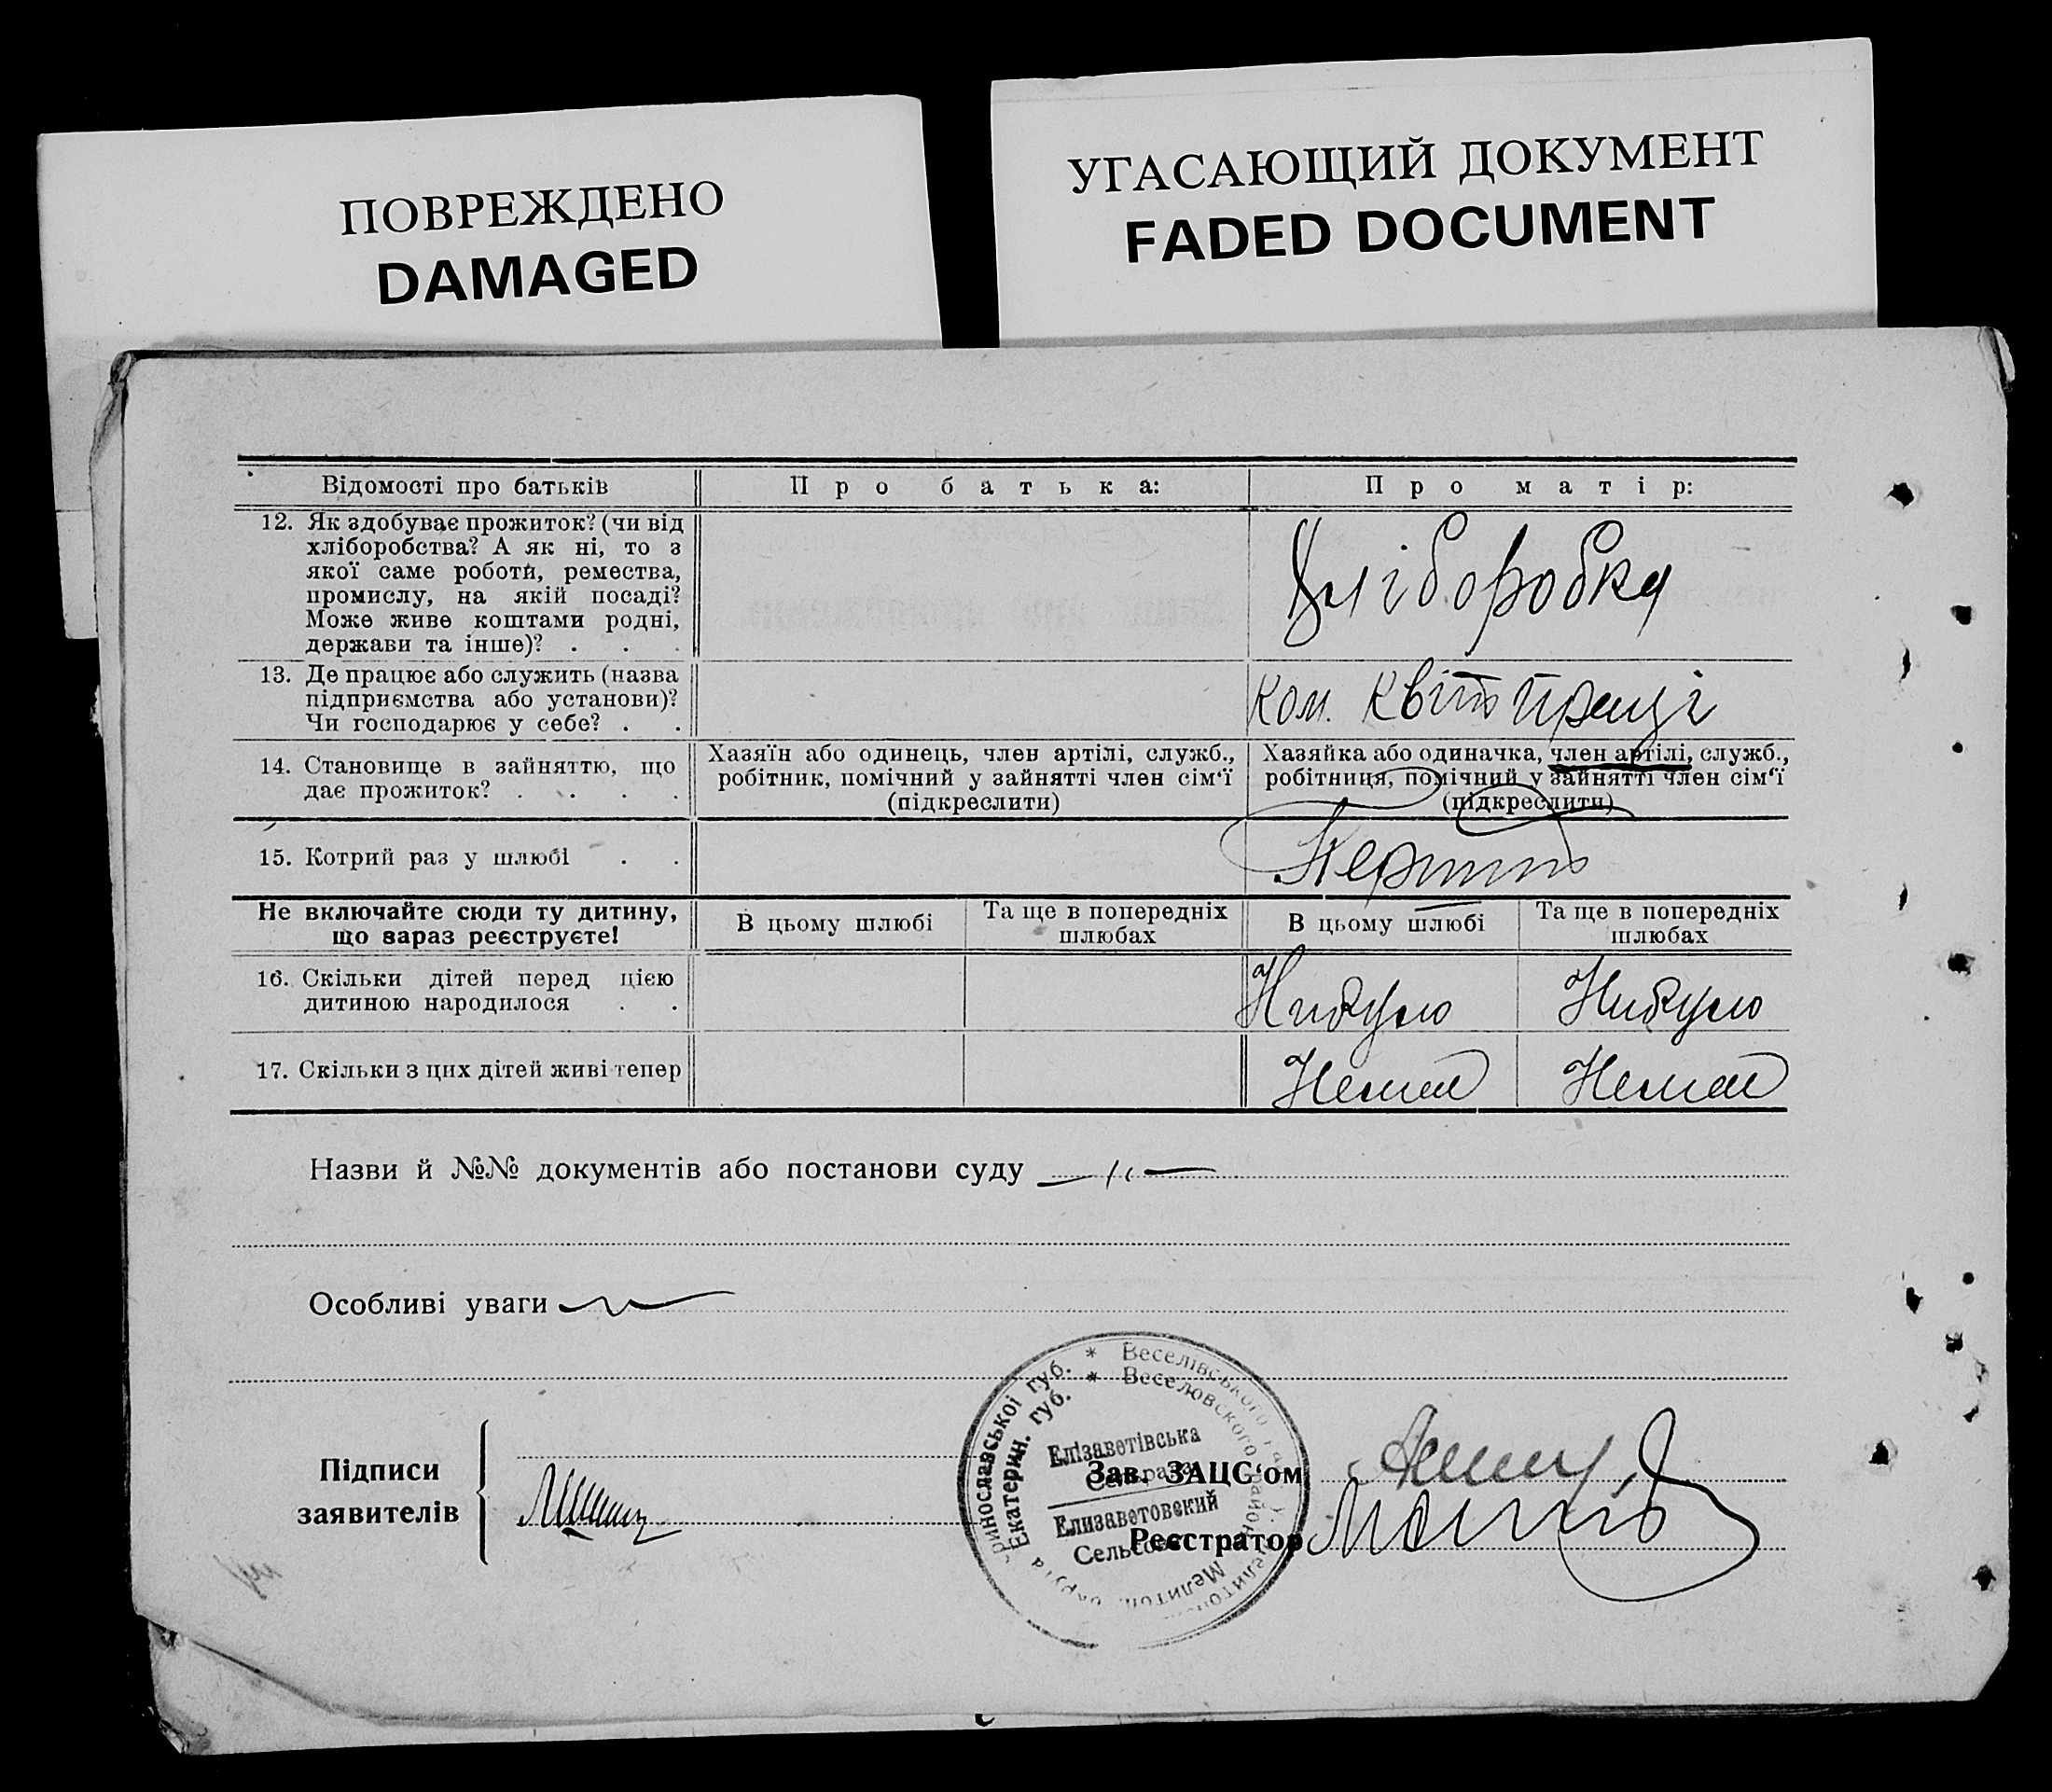 ПОВРЕЖДЕНО
DAMAGED
УГАСАЮЩИЙ ДОКУМЕНТ
FADED DOCUMENT
Відомості про батьків
Про батька:
Про матір:
12. Як здобуває прожиток? (чи від
хліборобства? А як ні, то з
якої саме роботи, ремества,
промислу, на якій посаді?
Може живе коштами родні,
держави та інше)? . . .
Хліборобка
13. Де працює або служить (назва
підприємства або установи)?
Чи господарює у себе? . .
Ком. Квіт Праці
14. Становище в зайняттю, що
дає прожиток? . . . .
Хазяїн або одинець, член артілі, служб.,
робітник, помічний у зайнятті член сім'ї
(підкреслити)
Хазяйка або одиначка, член артілі, служб.,
робітниця, помічний у зайнятті член сім'ї
(підкреслити)
15. Котрий раз у шлюбі . .
Не включайте сюди ту дитину,
що зараз реєструєте!
В цьому шлюбі
Та ще в попередніх
шлюбах
В цьому шлюбі
Та ще в попередніх
шлюбах
16. Скільки дітей перед цією
дитиною народилося . .
Нибуло
Нибуло
17. Скільки з цих дітей живі тепер
Немає
Немає
Назви й №№ документів або постанови суду
Особливі уваги
Підписи
заявителів
Зав. ЗАЦС'ом
Реєстратор
* Веселівського
* Веселовского
Екатерин. губ.
Елізаветівська
Елизаветовский